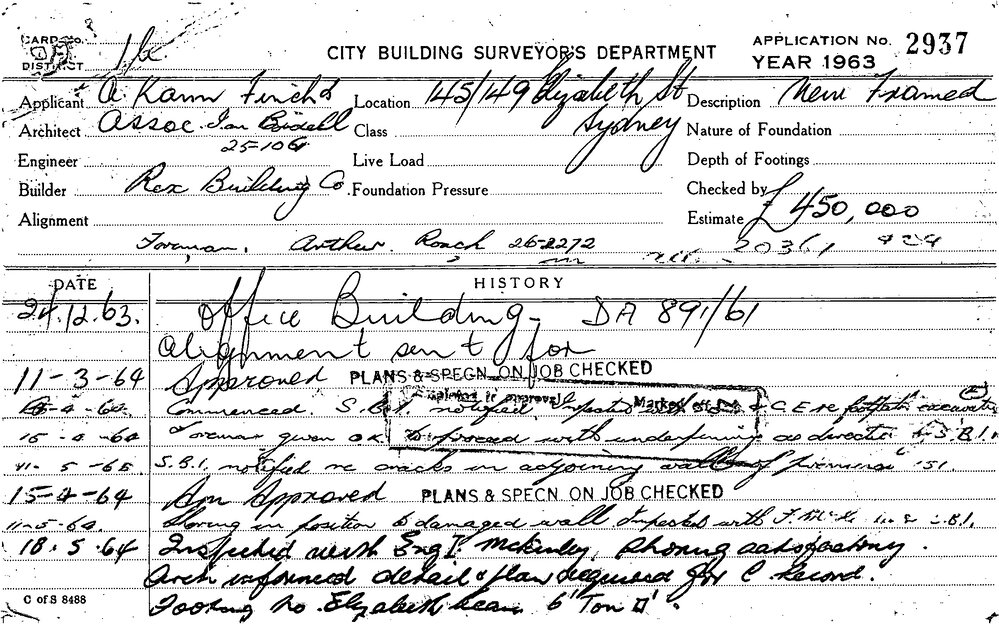 CARD No. CITY BUILDING SURVEYOR'S DEPARTMENT APPLICATION No. 2937
DISTRICT YEAR 1963
Applicant A Kann Finch & Location 145/149 Elizabeth St Description New Framed
Architect Assoc. Class Sydney Nature of Foundation
25-106
Engineer Live Load Depth of Footings
Builder Rex Building Co. Foundation Pressure Checked by
Alignment Estimate £ 450,000
Foreman, Arthur Roach 26-2272 20361
DATE HISTORY
24.12.63. Office Building - DA 891/61
Alignment sent for
11-3-64 Approved PLANS & SPECN. ON JOB CHECKED
Commenced. S.B.I. notified. Marked off
15-4-64 Foreman given OK to proceed with underpinning as directed S.B.I.
S.B.I. notified re cracks in adjoining wall of premises 151.
15-4-64 Am Approved PLANS & SPECN. ON JOB CHECKED
11-5-64. Shoring in position to damaged wall Inspected with
18.5.64 Inspected with Eng. McKinley, shoring satisfactory.
Arch informed detail & plan required for C Record.
Footing to Elizabeth 6 Ton
C of S 8488